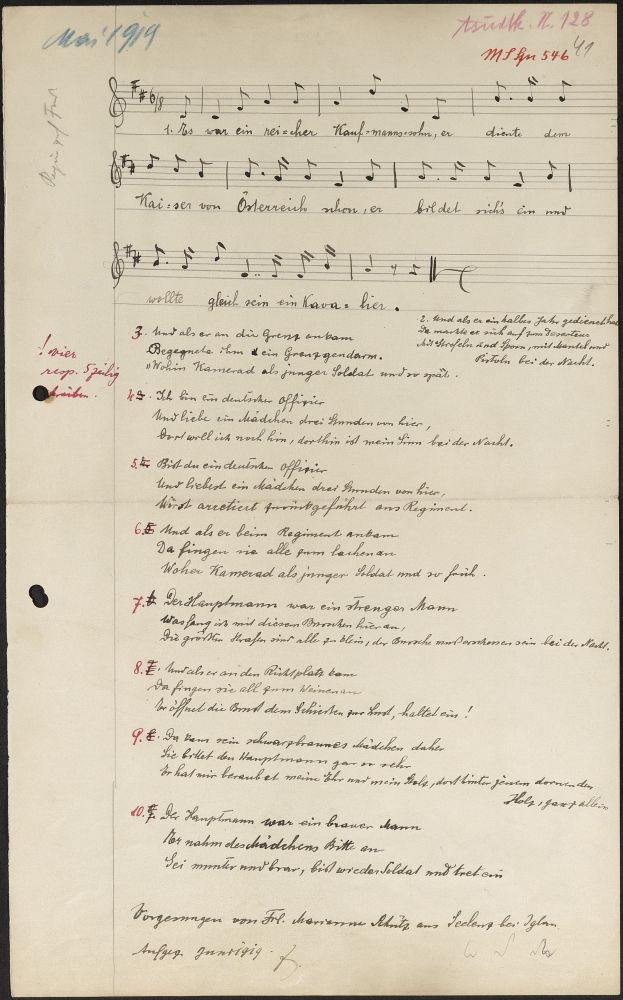 Mai 1919
MS Gu 546
41
1. Es war ein rei=cher Kauf=manns=sohn, er diente dem
Kai=ser von Österreich schon, er bildet sich's ein und
wollte gleich sein ein Kava=lier.
2. Und als er ein halbes Jahr gedienet hat
Da machte er sich auf zum Deserteur
Mit Stiefeln und Sporn, mit Mantel und
Pistoln bei der Nacht.
3. Und als er an die Grenz ankam
Begegnete ihm ein Grenzgendarm.
"Wohin Kamerad als junger Soldat und so spät.
! vier
resp. 5 zeilig
schreiben.
4. Ich bin ein deutscher Offizier
Und liebe ein Mädchen drei Stunden von hier,
Dort will ich noch hin, dorthin ist mein Sinn bei der Nacht.
5. Bist du ein deutscher Offizier
Und liebest ein Mädchen drei Stunden von hier,
Wirst arretiert zurückgeführt ans Regiment.
6. Und als er beim Regiment ankam
Da fingen sie alle zum lachen an
Woher Kamerad als junger Soldat und so früh.
7. Der Hauptmann war ein strenger Mann
Was fang ich mit diesem Burschen hier an,
Die größten Strafen sind alle zu klein, der Bursche muß erschossen sein bei der Nacht.
8. Und als er an den Richtplatz kam
Da fingen sie all zum Weinen an
Er öffnet die Brust dem Schießen zur Lust, haltet ein!
9. Da kam sein schwarzbraunes Mädchen daher
Sie bittet den Hauptmann gar so sehr
Er hat mir beraubet meine Ehr und mein Stolz, dort hinter jenem dornenden
Holz, ganz allein
10. Der Hauptmann war ein braver Mann
Er nahm des Mädchens Bitte an
Sei munter und brav, bist wieder Soldat und tret ein
Vorgesungen von Frl. Marianne Schütz aus Seelenz bei Iglau
Aufgez.